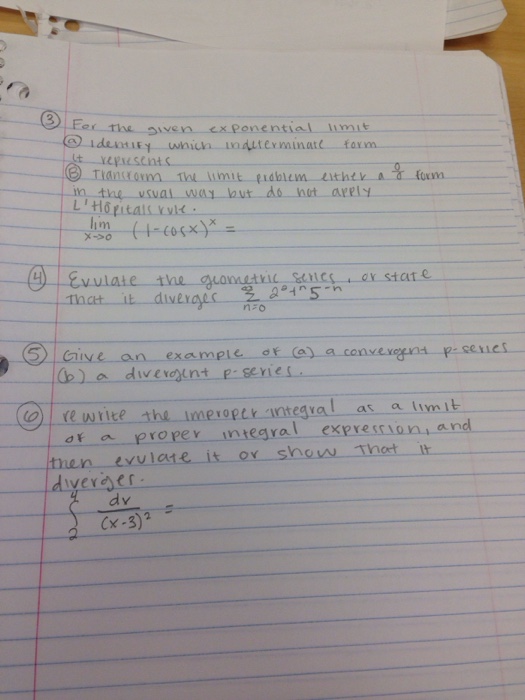 ③ For the given exponential limit
ⓐ identify which indeterminate form
it represents
Ⓑ Transform the limit problem either a 0/0 form
in the usual way but do not apply
L'Hôpitals rule.
lim x→0 (1-cosx)^x =
④ Evulate the geometric series, or state
That it diverges ∞ Σ n=0 2^2+n 5^-n
⑤ Give an example of (a) a convergent p-series
(b) a divergent p-series.
⑥ rewrite the improper integral as a limit
of a proper integral expression, and
then evulate it or show that it
diverges.
∫ 4 2 dv/(x-3)² =